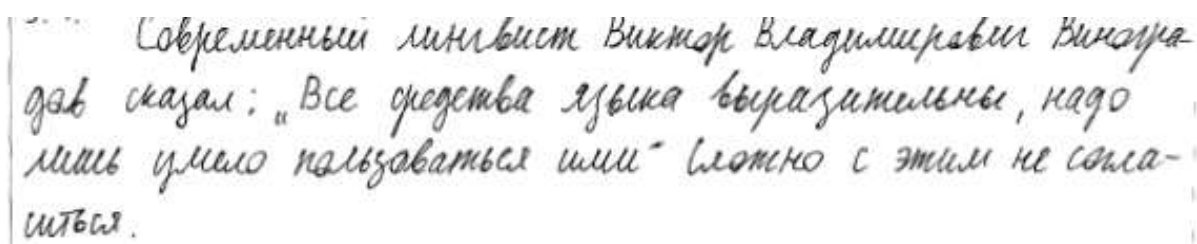 Современный лингвист Виктор Владимирович Виногра-
дов сказал: „Все средства языка выразительны, надо
лишь умело пользоваться ими“ Сложно с этим не согла-
ситься.